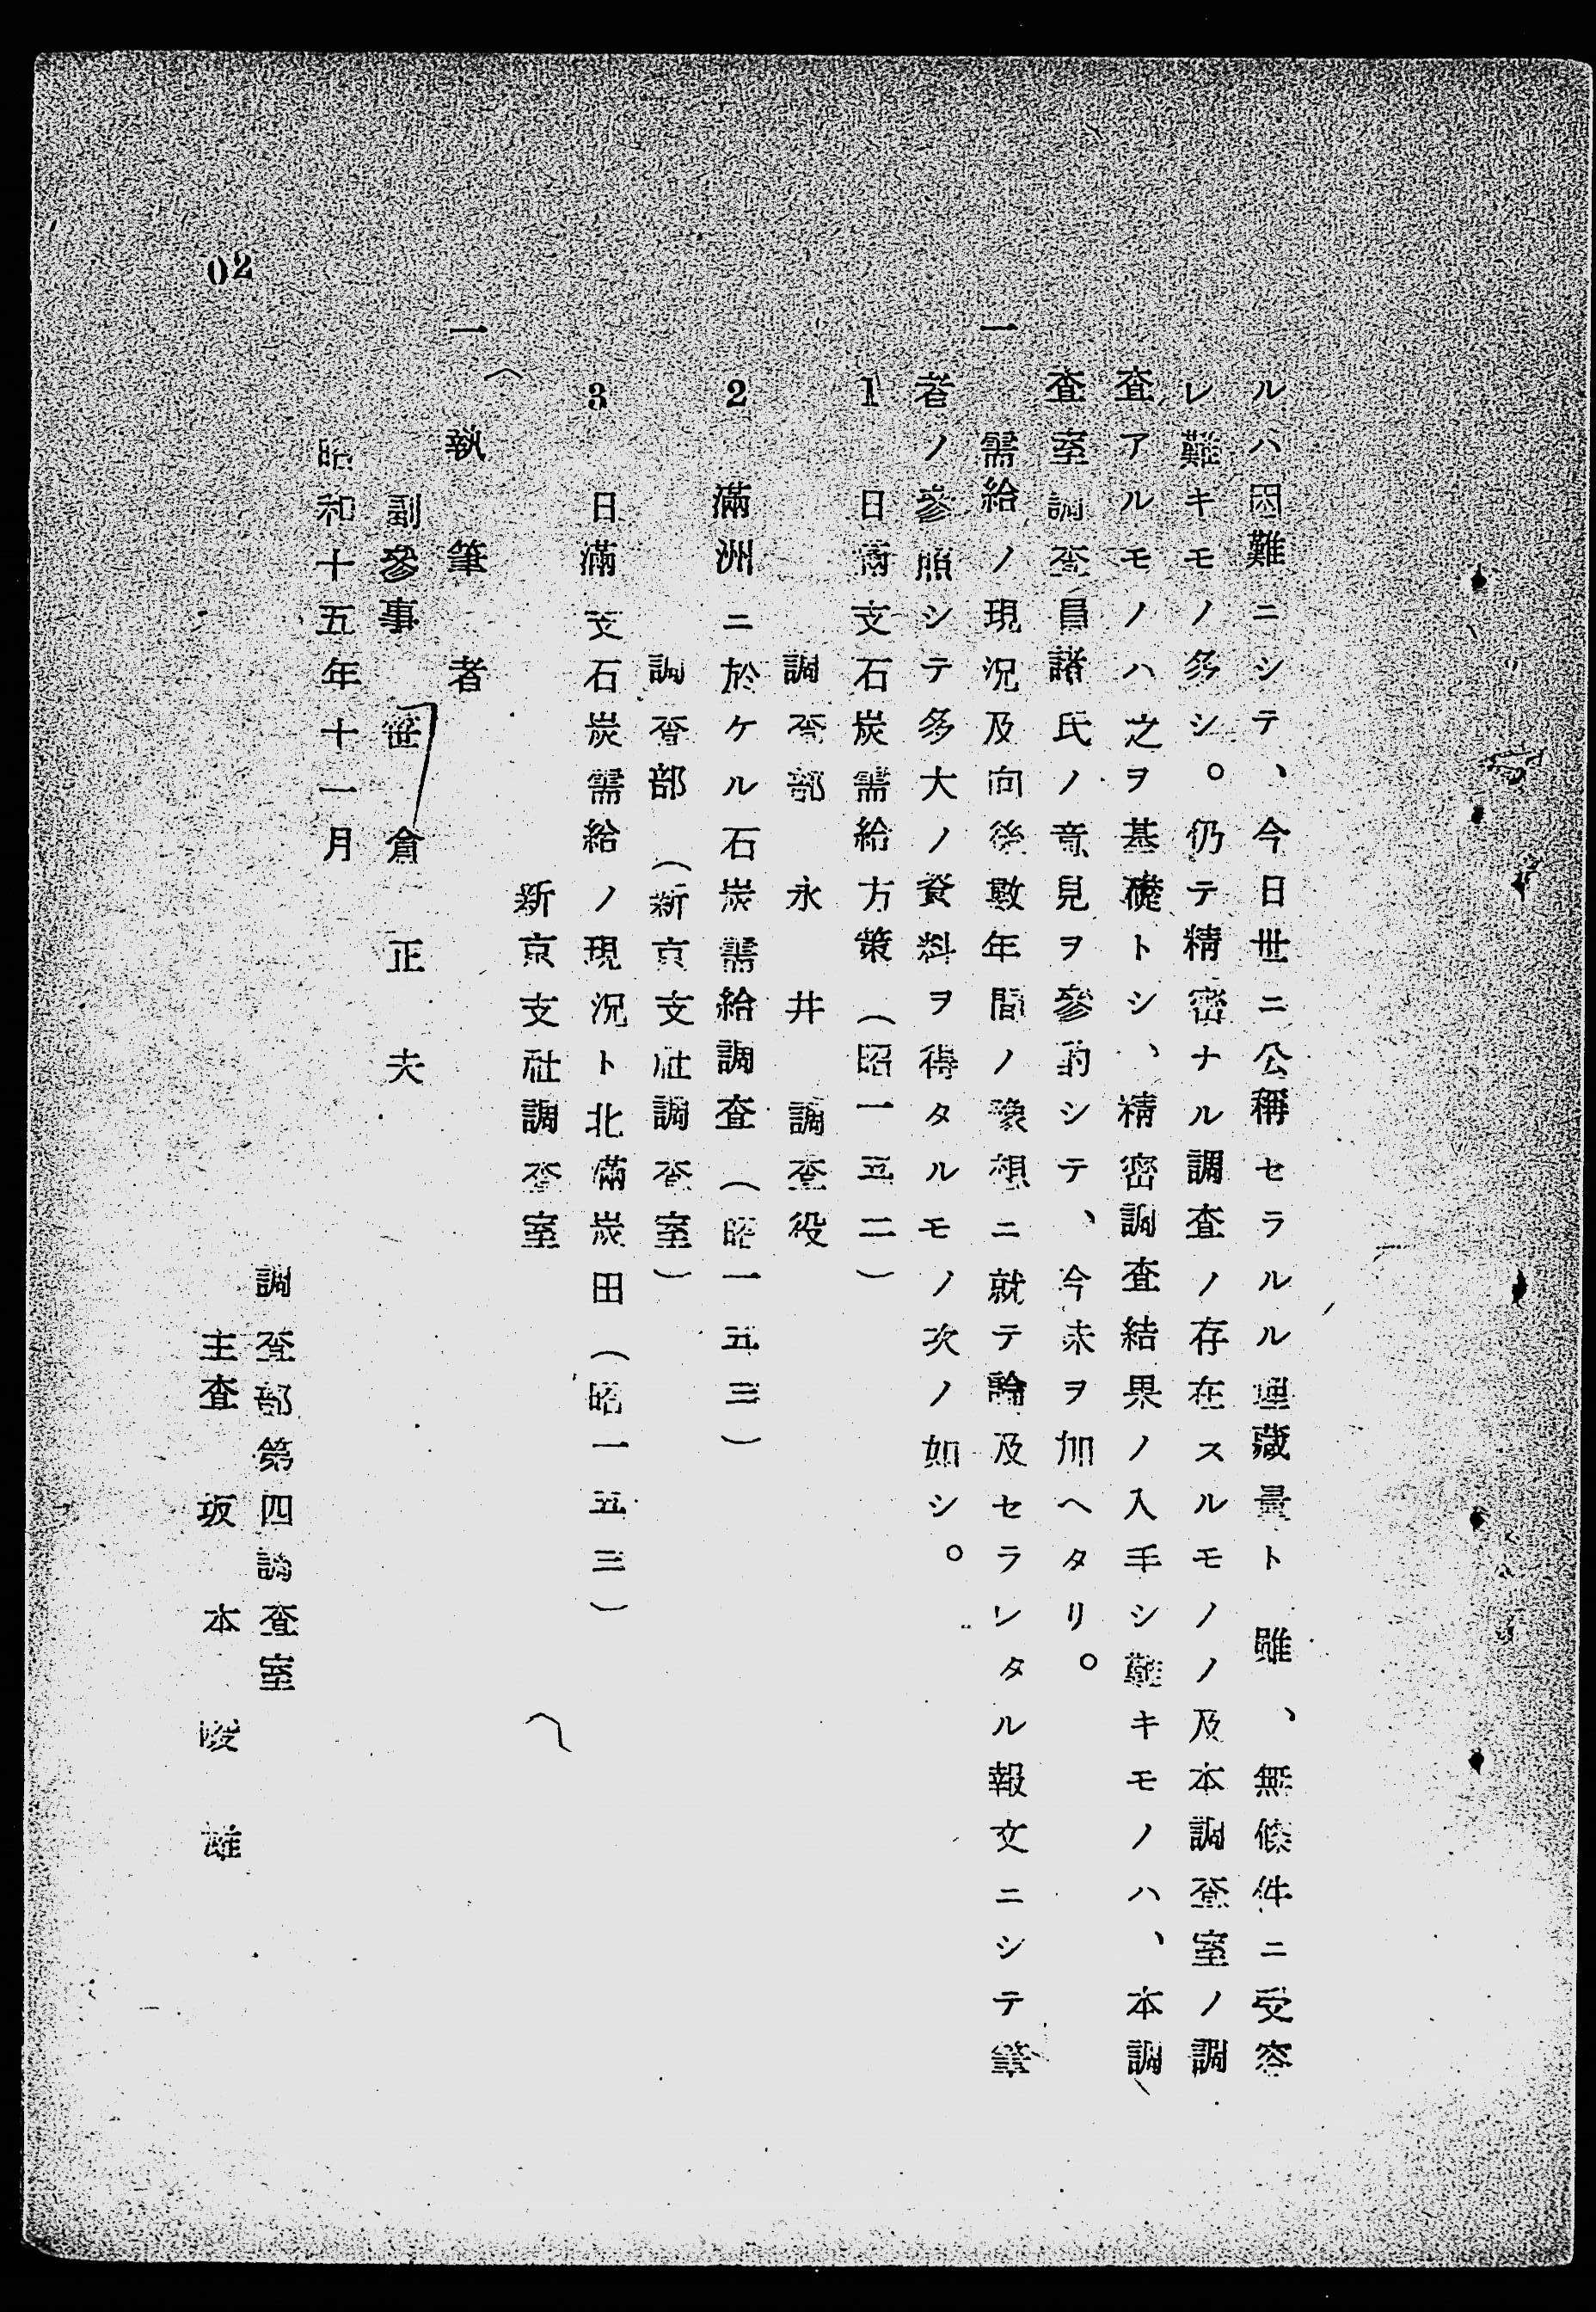 ルハ困難ニシテ、今日世ニ公稱セラルル埋藏量ト雖、無條件ニ受容
レ難キモノ多シ。仍テ精密ナル調査ノ存在スルモノノ及本調査室ノ調
査アルモノハ之ヲ基礎トシ、精密調査結果ノ入手シ難キモノハ、本調
査室調査員諸氏ノ意見ヲ參酌シテ、今末ヲ加ヘタリ。
一 需給ノ現況及向後數年間ノ豫想ニ就テ論及セラレタル報文ニシテ筆
者ノ參照シテ多大ノ資料ヲ得タルモノ次ノ如シ。
1 日滿支石炭需給方策(昭一五二)
調査部 永井 調査役
2 滿洲ニ於ケル石炭需給調査(昭一五三)
調査部(新京支社調査室)
3 日滿支石炭需給ノ現況ト北滿炭田(昭一五三)
新京支社調査室
一 執筆者
副參事 笹倉正夫
昭和十五年十一月
調査部第四調査室
主査 坂本 雄
02